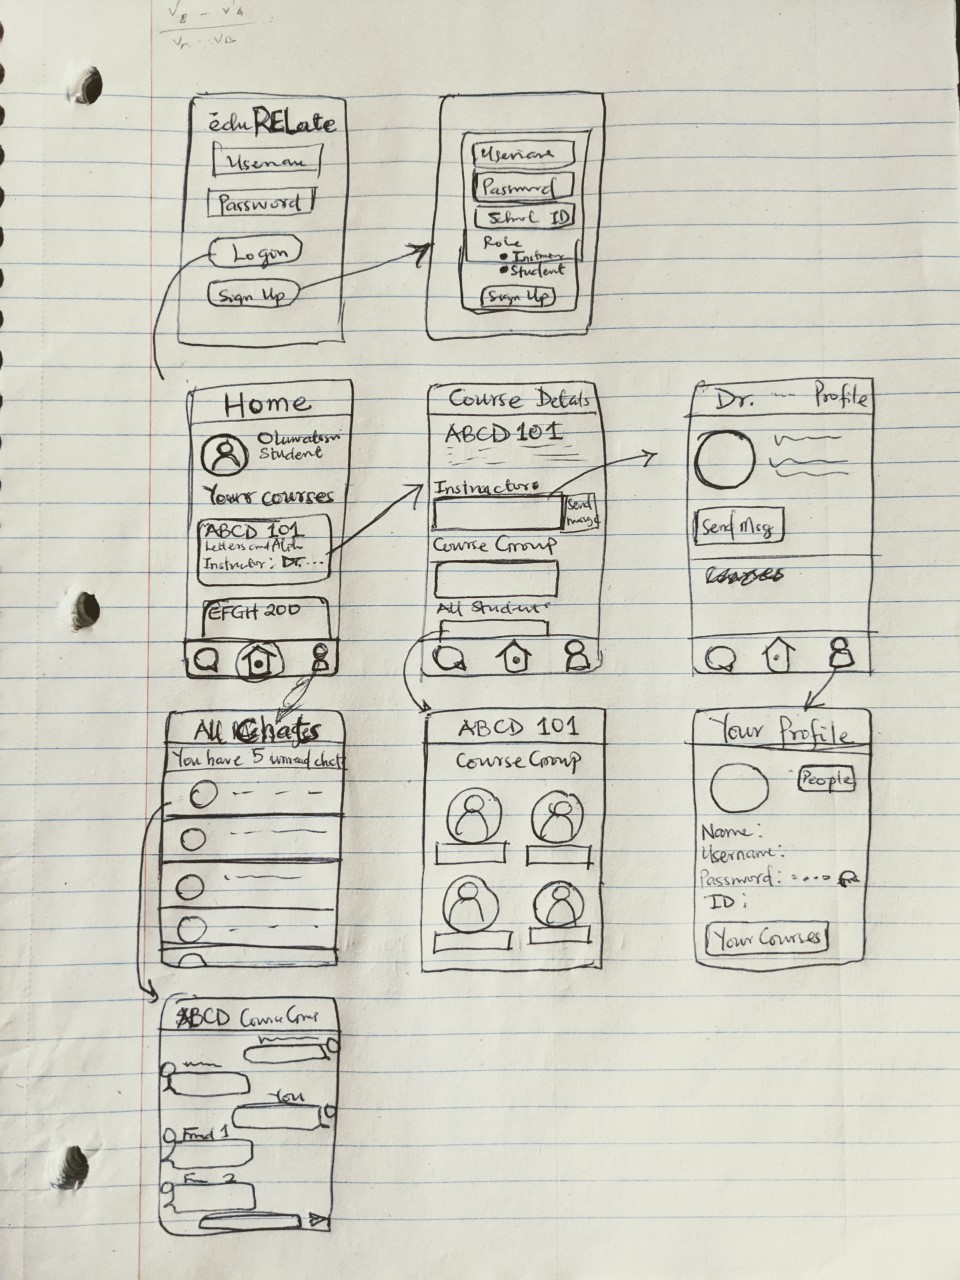 eduRELate
Username
Password
Logon
Sign Up
Username
Password
School ID
Role
• Instructor
• Student
Sign Up
Home
Student
Your courses
ABCD 101
Letters and
Instructor: Dr. ....
EFGH 200
Course Details
ABCD 101
Instructors
Send
Course Group
All Students
Dr. --- Profile
Send Msg
All Chats
You have 5 unread chat
ABCD 101
Course Group
Your Profile
People
Name:
Username:
Password:
ID:
Your Courses
ABCD Course
You
2